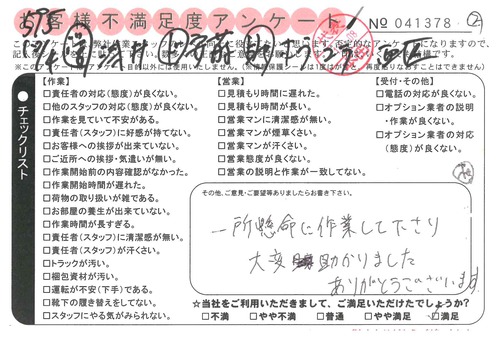 お客様不満足度アンケート
№ 041378
チェックリスト
【作業】
□責任者の対応(態度)が良くない。
□他のスタッフの対応(態度)が良くない。
□作業を見ていて不安がある。
□責任者(スタッフ)に好感が持てない。
□お客様への挨拶が出来ていない。
□ご近所への挨拶・気遣いが無い。
□作業開始前の内容確認がなかった。
□作業開始時間が遅れた。
□荷物の取り扱いが雑である。
□お部屋の養生が出来ていない。
□作業時間が長すぎる。
□責任者(スタッフ)に清潔感が無い。
□責任者(スタッフ)が汗くさい。
□トラックが汚い。
□梱包資材が汚い。
□運転が不安(下手)である。
□靴下の履き替えをしてない。
□スタッフにやる気がみられない。
【営業】
□見積もり時間に遅れた。
□見積もり時間が長い。
□営業マンに清潔感が無い。
□営業マンが煙草くさい。
□営業マンが汗くさい。
□営業態度が良くない。
□営業の説明と作業が一致してない。
【受付・その他】
□電話の対応が良くない。
□オプション業者の説明・作業が良くない。
□オプション業者の対応(態度)が良くない。
その他、ご意見・ご要望等ありましたらお書き下さい。
一所懸命に作業して下さり
大変助かりました
ありがとうございます
☆当社をご利用いただきまして、ご満足いただけたでしょうか?
□不満 □やや不満 □普通 □やや満足 □満足